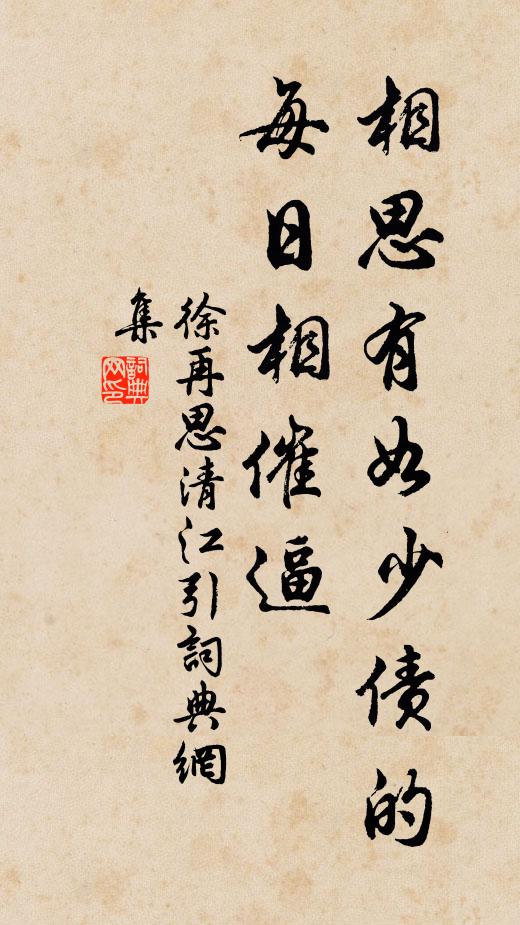 相思有如少债的
每日相催逼
徐再思清江引詞典網
集
詞典网印